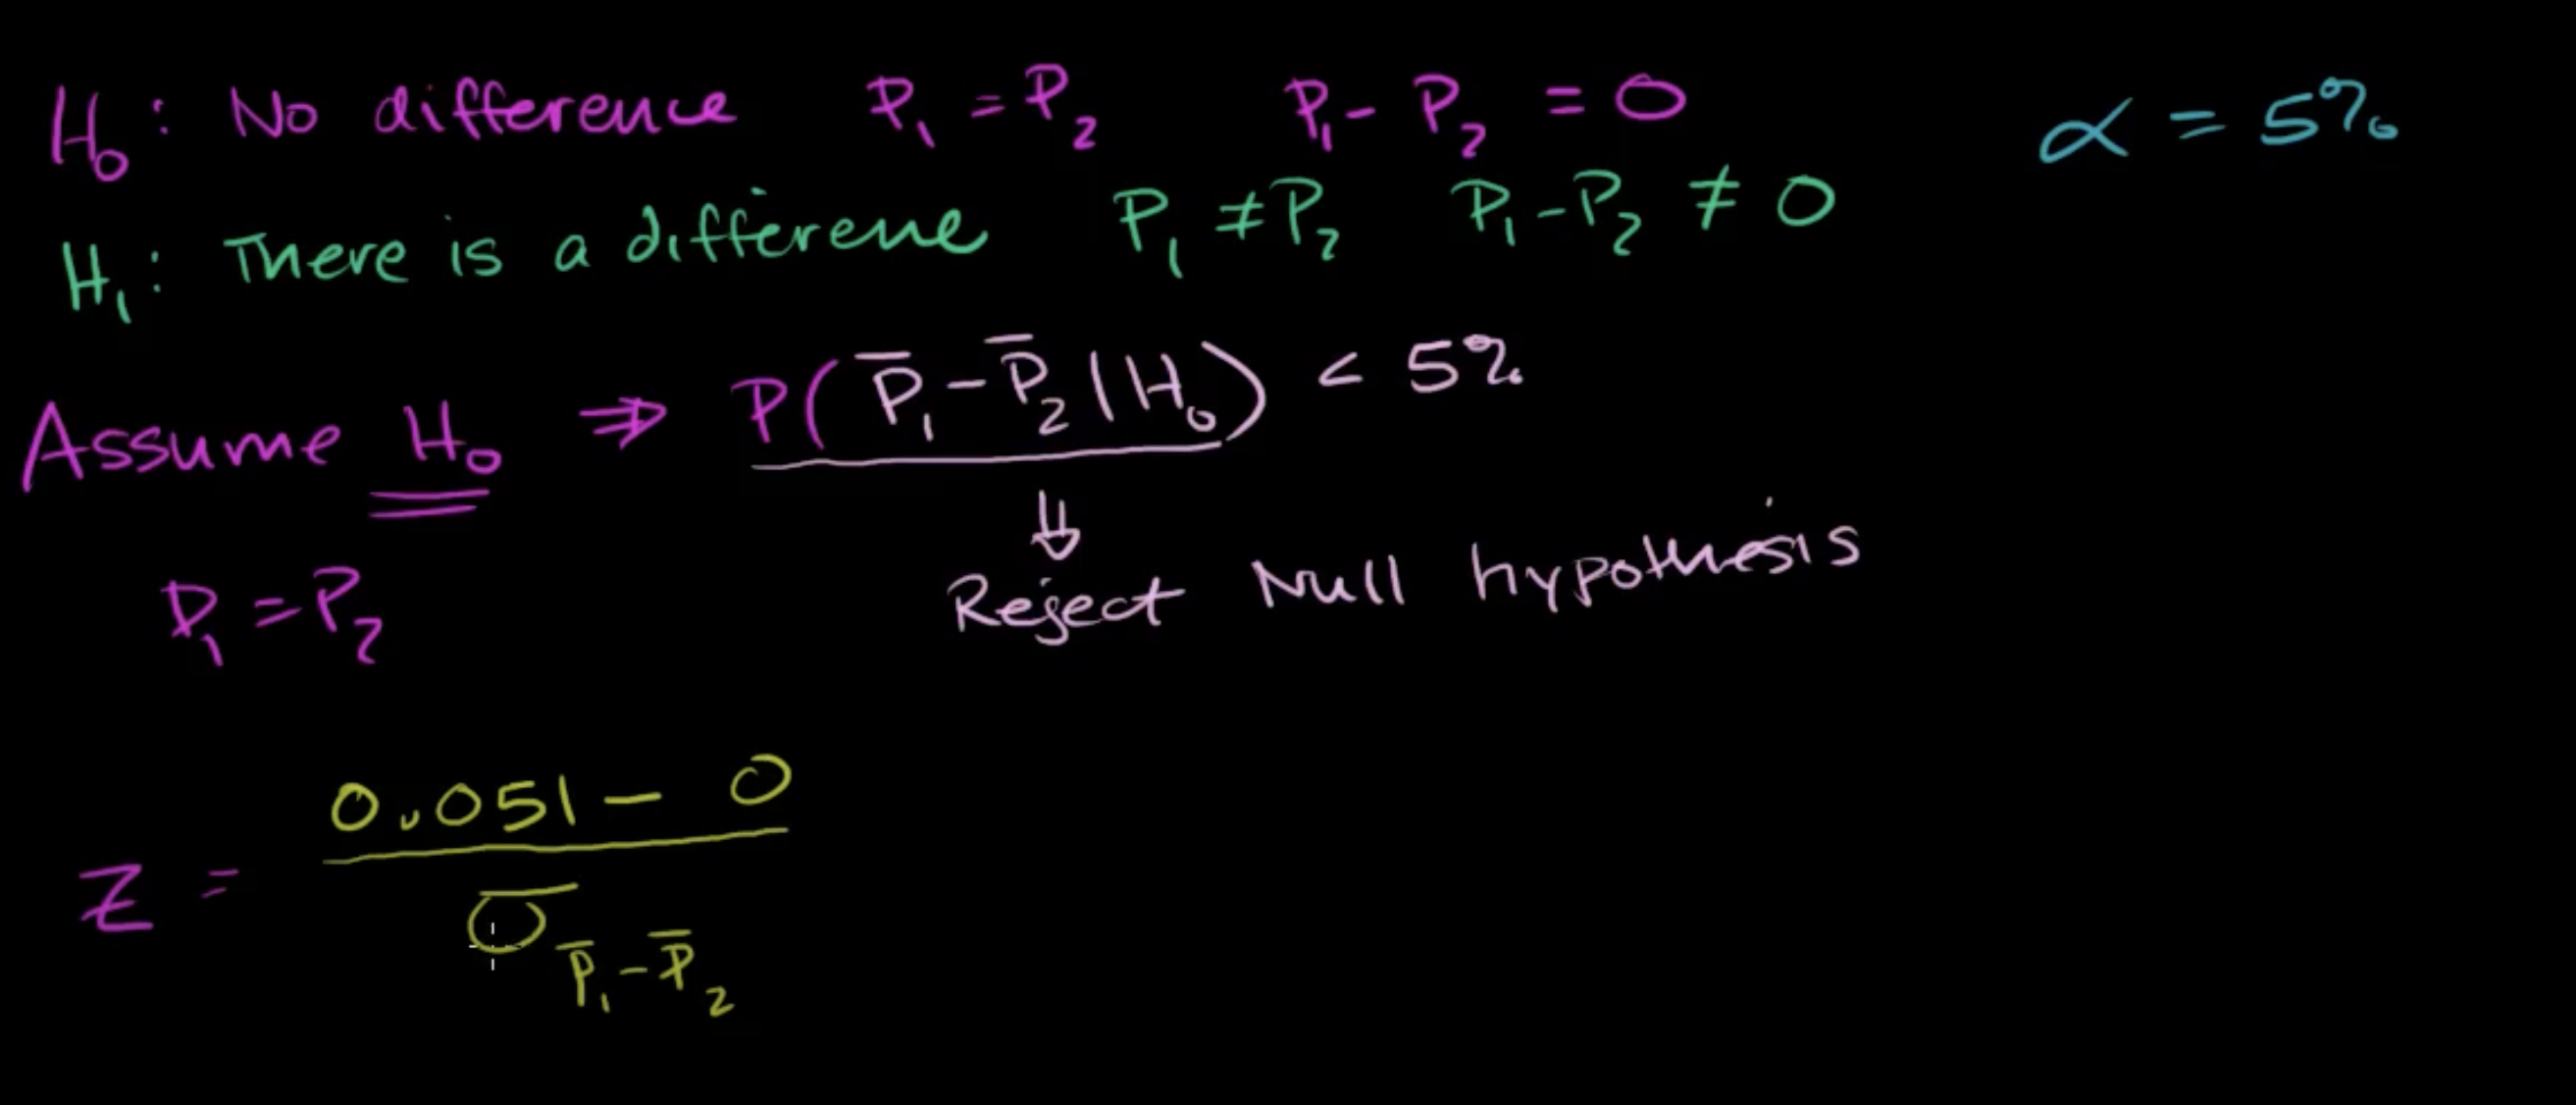 H₀: No difference P₁ = P₂ P₁ - P₂ = 0 α = 5%
H₁: There is a differene P₁ ≠ P₂ P₁ - P₂ ≠ 0
Assume H₀ ⇒ P(P̄₁ - P̄₂ | H₀) < 5%
⇓
Reject Null hypothesis
P₁ = P₂
0.051 - 0
Z =
σ P̄₁ - P̄₂